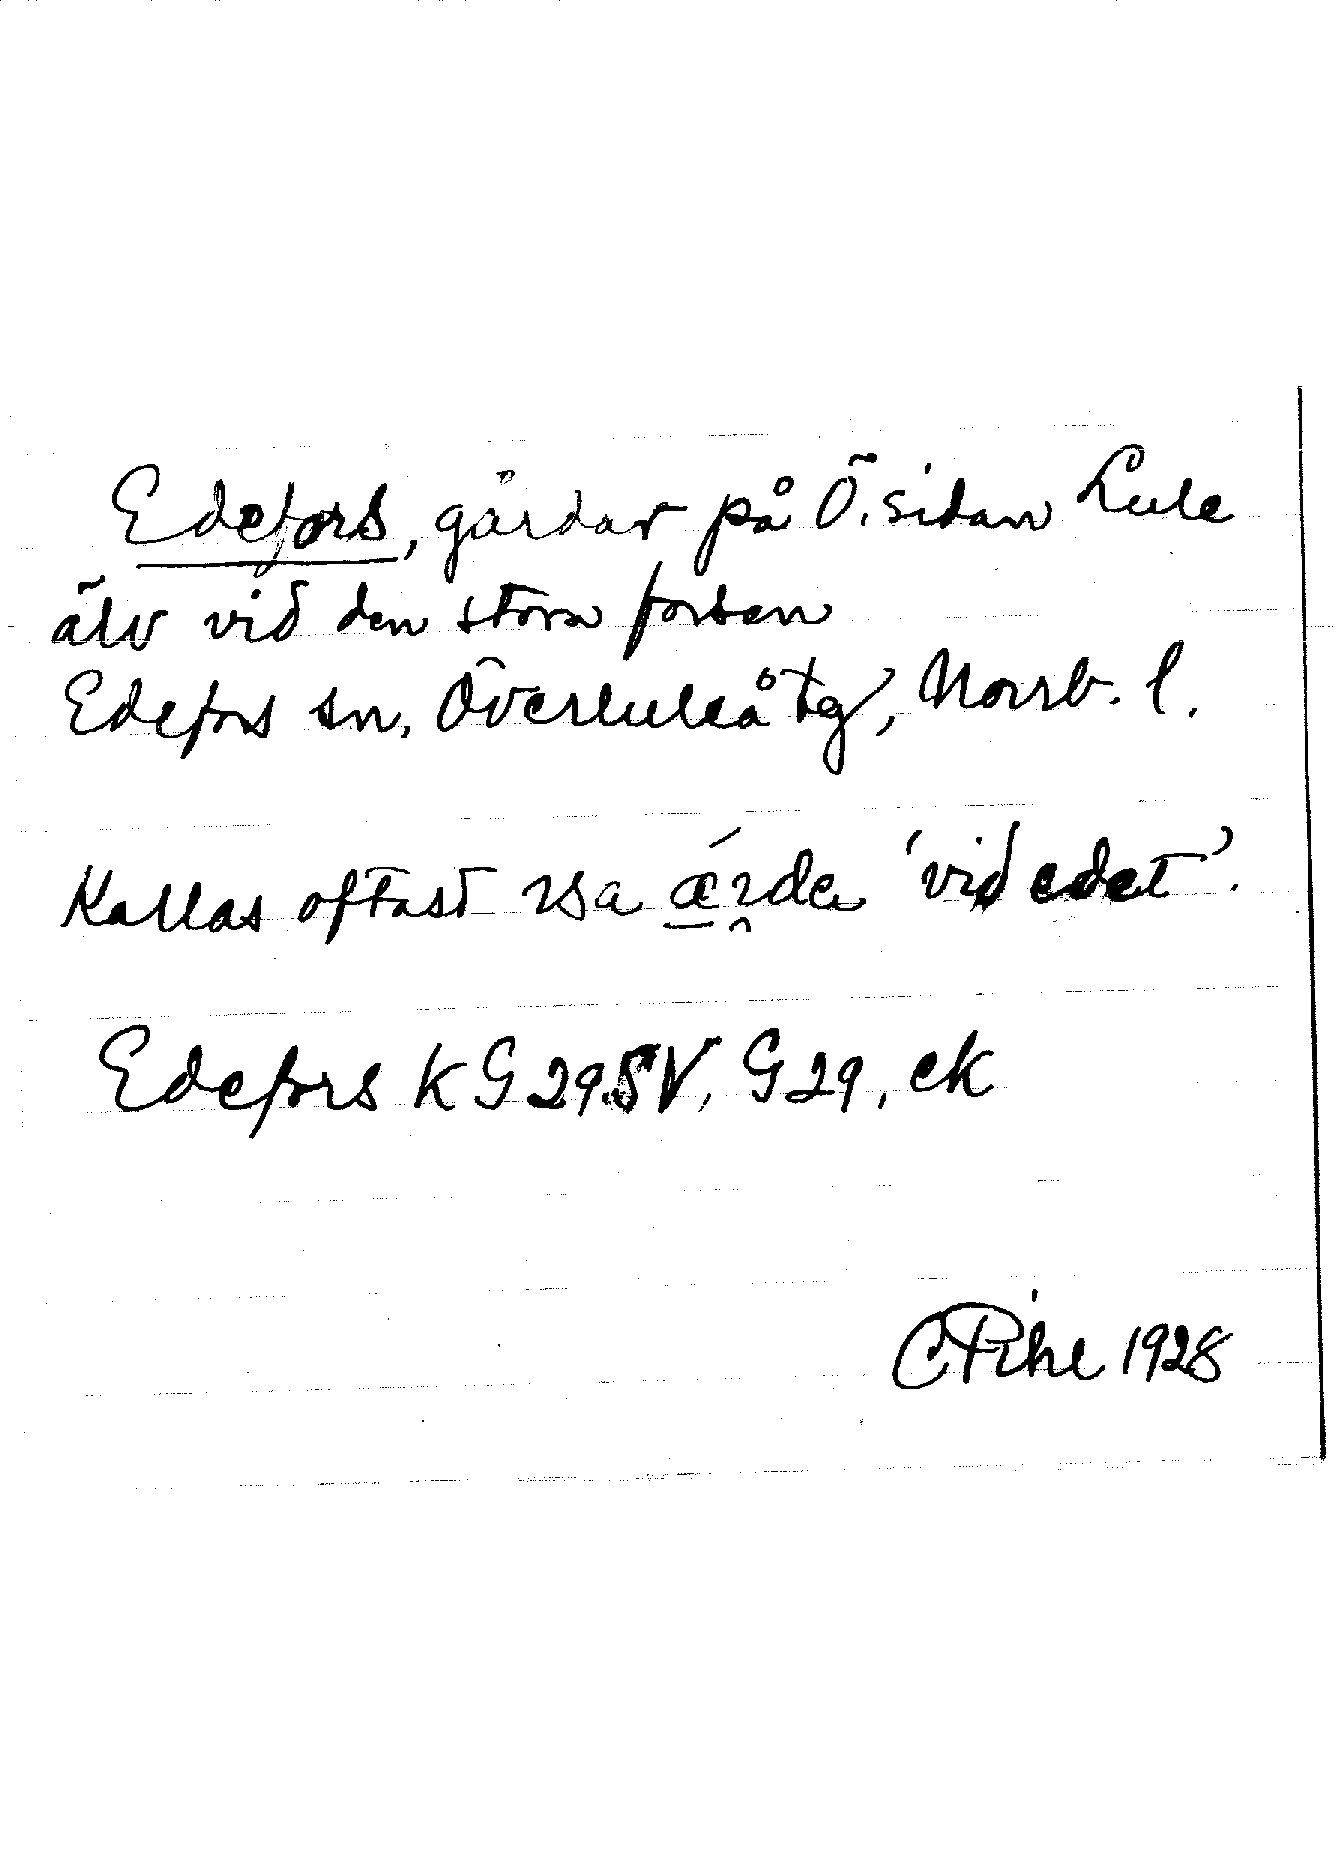 Edefors, gårdar på Ö. sidan Lule
älv vid den stora forsen
Edefors sn, Överluleå tg, Norrb. l.
Kallas oftast 'vid edet'.
Edefors k G 29 SV, G 29, ek
C Pihl 1928